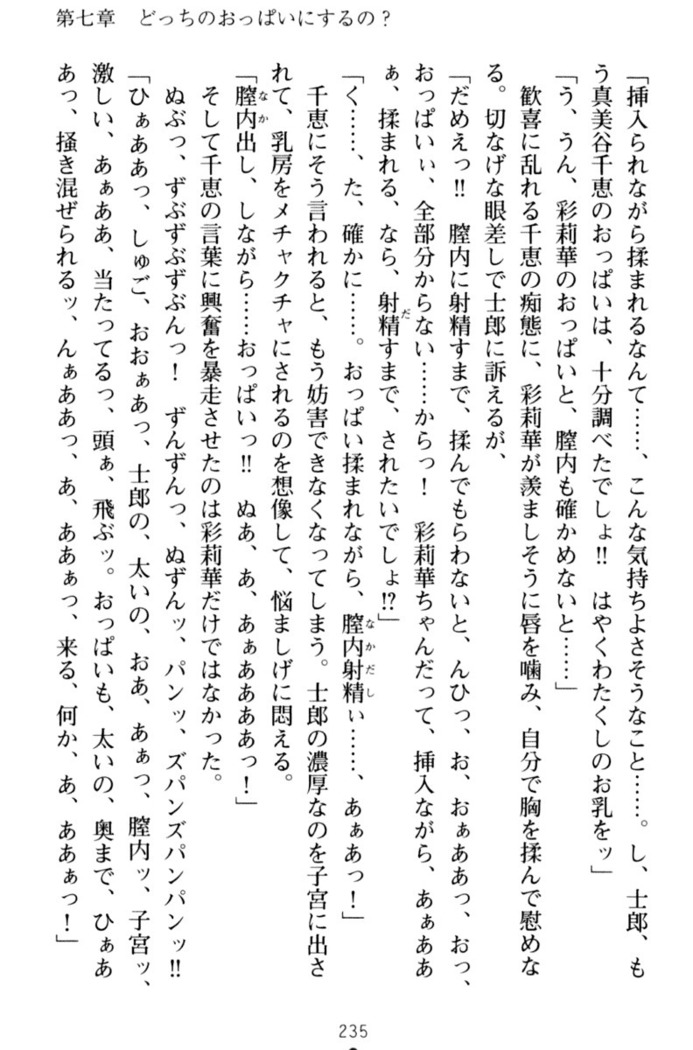 第七章　どっちのおっぱいにするの？
「挿入られながら揉まれるなんて……、こんな気持ちよさそうなこと……。し、士郎、も
う真美谷千恵のおっぱいは、十分調べたでしょ!!　はやくわたくしのお乳をッ」
「う、うん、彩莉華のおっぱいと、膣内も確かめないと……」
　歓喜に乱れる千恵の痴態に、彩莉華が羨ましそうに唇を噛み、自分で胸を揉んで慰めな
る。切なげな眼差しで士郎に訴えるが、
「だめえっ!!　膣内に射精すまで、揉んでもらわないと、んひっ、お、おぁああっ、おっ、
おっぱいぃ、全部分からない……からっ！　彩莉華ちゃんだって、挿入ながら、あぁああ
だ
ぁ、揉まれる、なら、射精すまで、されたいでしょ!?」
なかだし
「く……、た、確かに……。おっぱい揉まれながら、膣内射精ぃ……、あぁあっ！」
　千恵にそう言われると、もう妨害できなくなってしまう。士郎の濃厚なのを子宮に出さ
れて、乳房をメチャクチャにされるのを想像して、悩ましげに悶える。
なか
「膣内出し、しながら……おっぱいっ!!　ぬあ、あ、あぁああああっ！」
　そして千恵の言葉に興奮を暴走させたのは彩莉華だけではなかった。
　ぬぶっ、ずぶずぶずぶんっ！　ずんずんっ、ぬずんッ、パンッ、ズパンズパンパンッ!!
「ひぁああっ、しゅご、おおぁあっ、士郎の、太いの、おあ、あぁっ、膣内ッ、子宮ッ、
激しい、あぁああ、当たってるっ、頭ぁ、飛ぶッ。おっぱいも、太いの、奥まで、ひぁあ
あっ、掻き混ぜられるッ、んぁああっ、あ、ああぁっ、来る、何か、あ、ああぁっ！」
235